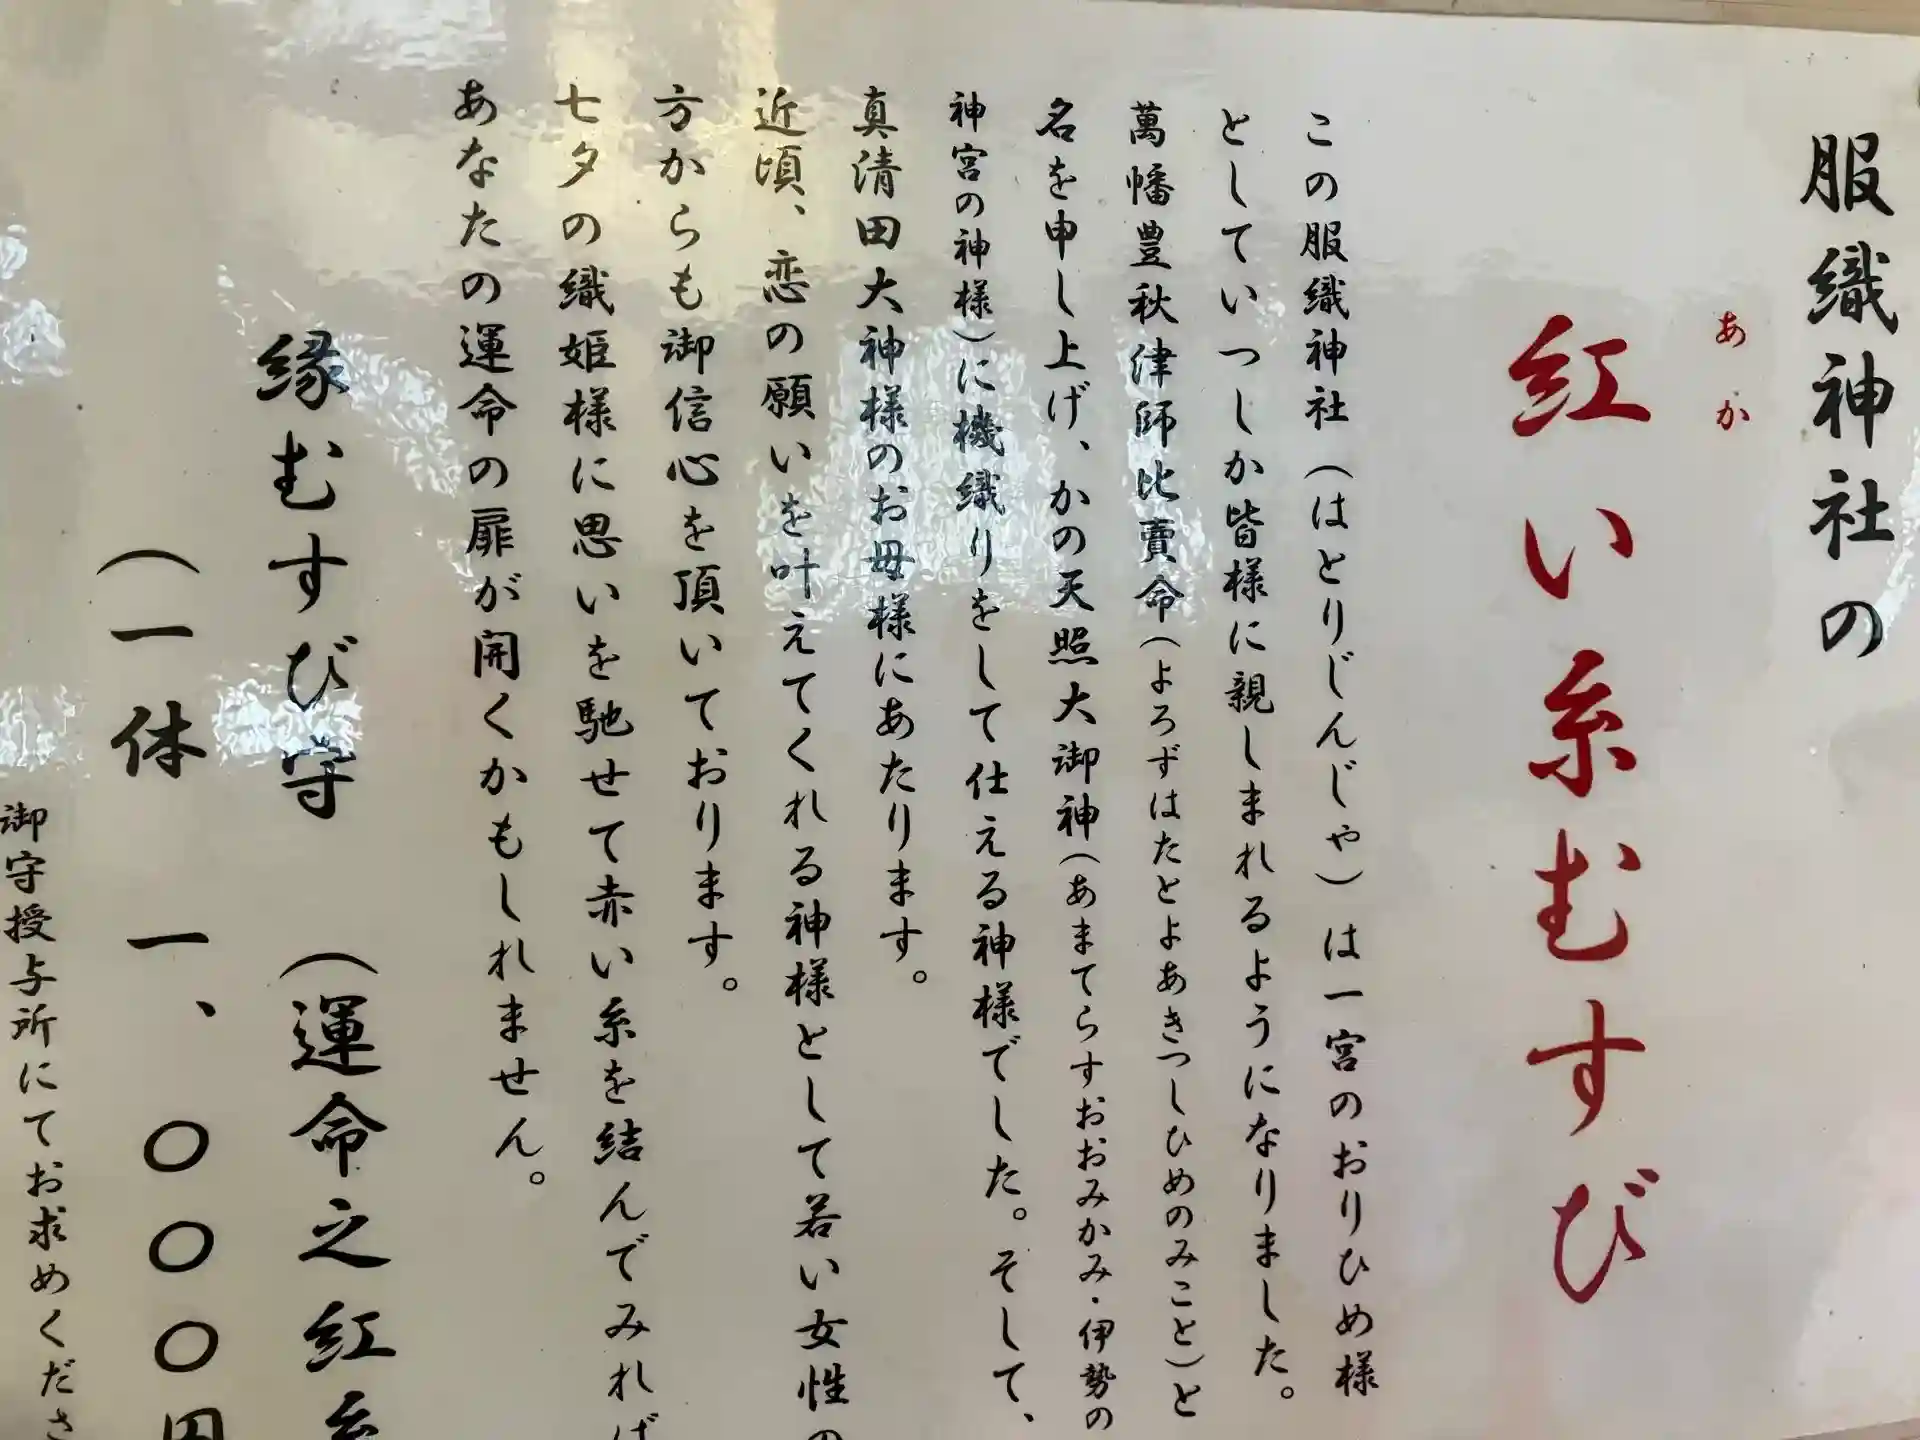 服織神社の
あか
紅い糸むすび
この服織神社（はとりじんじゃ）は一宮のおりひめ様
としていつしか皆様に親しまれるようになりました。
萬幡豊秋津師比賣命（よろずはたとよあきつしひめのみこと）と
名を申し上げ、かの天照大御神（あまてらすおおみかみ・伊勢の
神宮の神様）に機織りをして仕える神様でした。そして、
真清田大神様のお母様にあたります。
近頃、恋の願いを叶えてくれる神様として若い女性の
方からも御信心を頂いております。
七夕の織姫様に思いを馳せて赤い糸を結んでみれば
あなたの運命の扉が開くかもしれません。
縁むすび守　（運命之紅糸
（一体　一、〇〇〇円
御守授与所にてお求めくださ